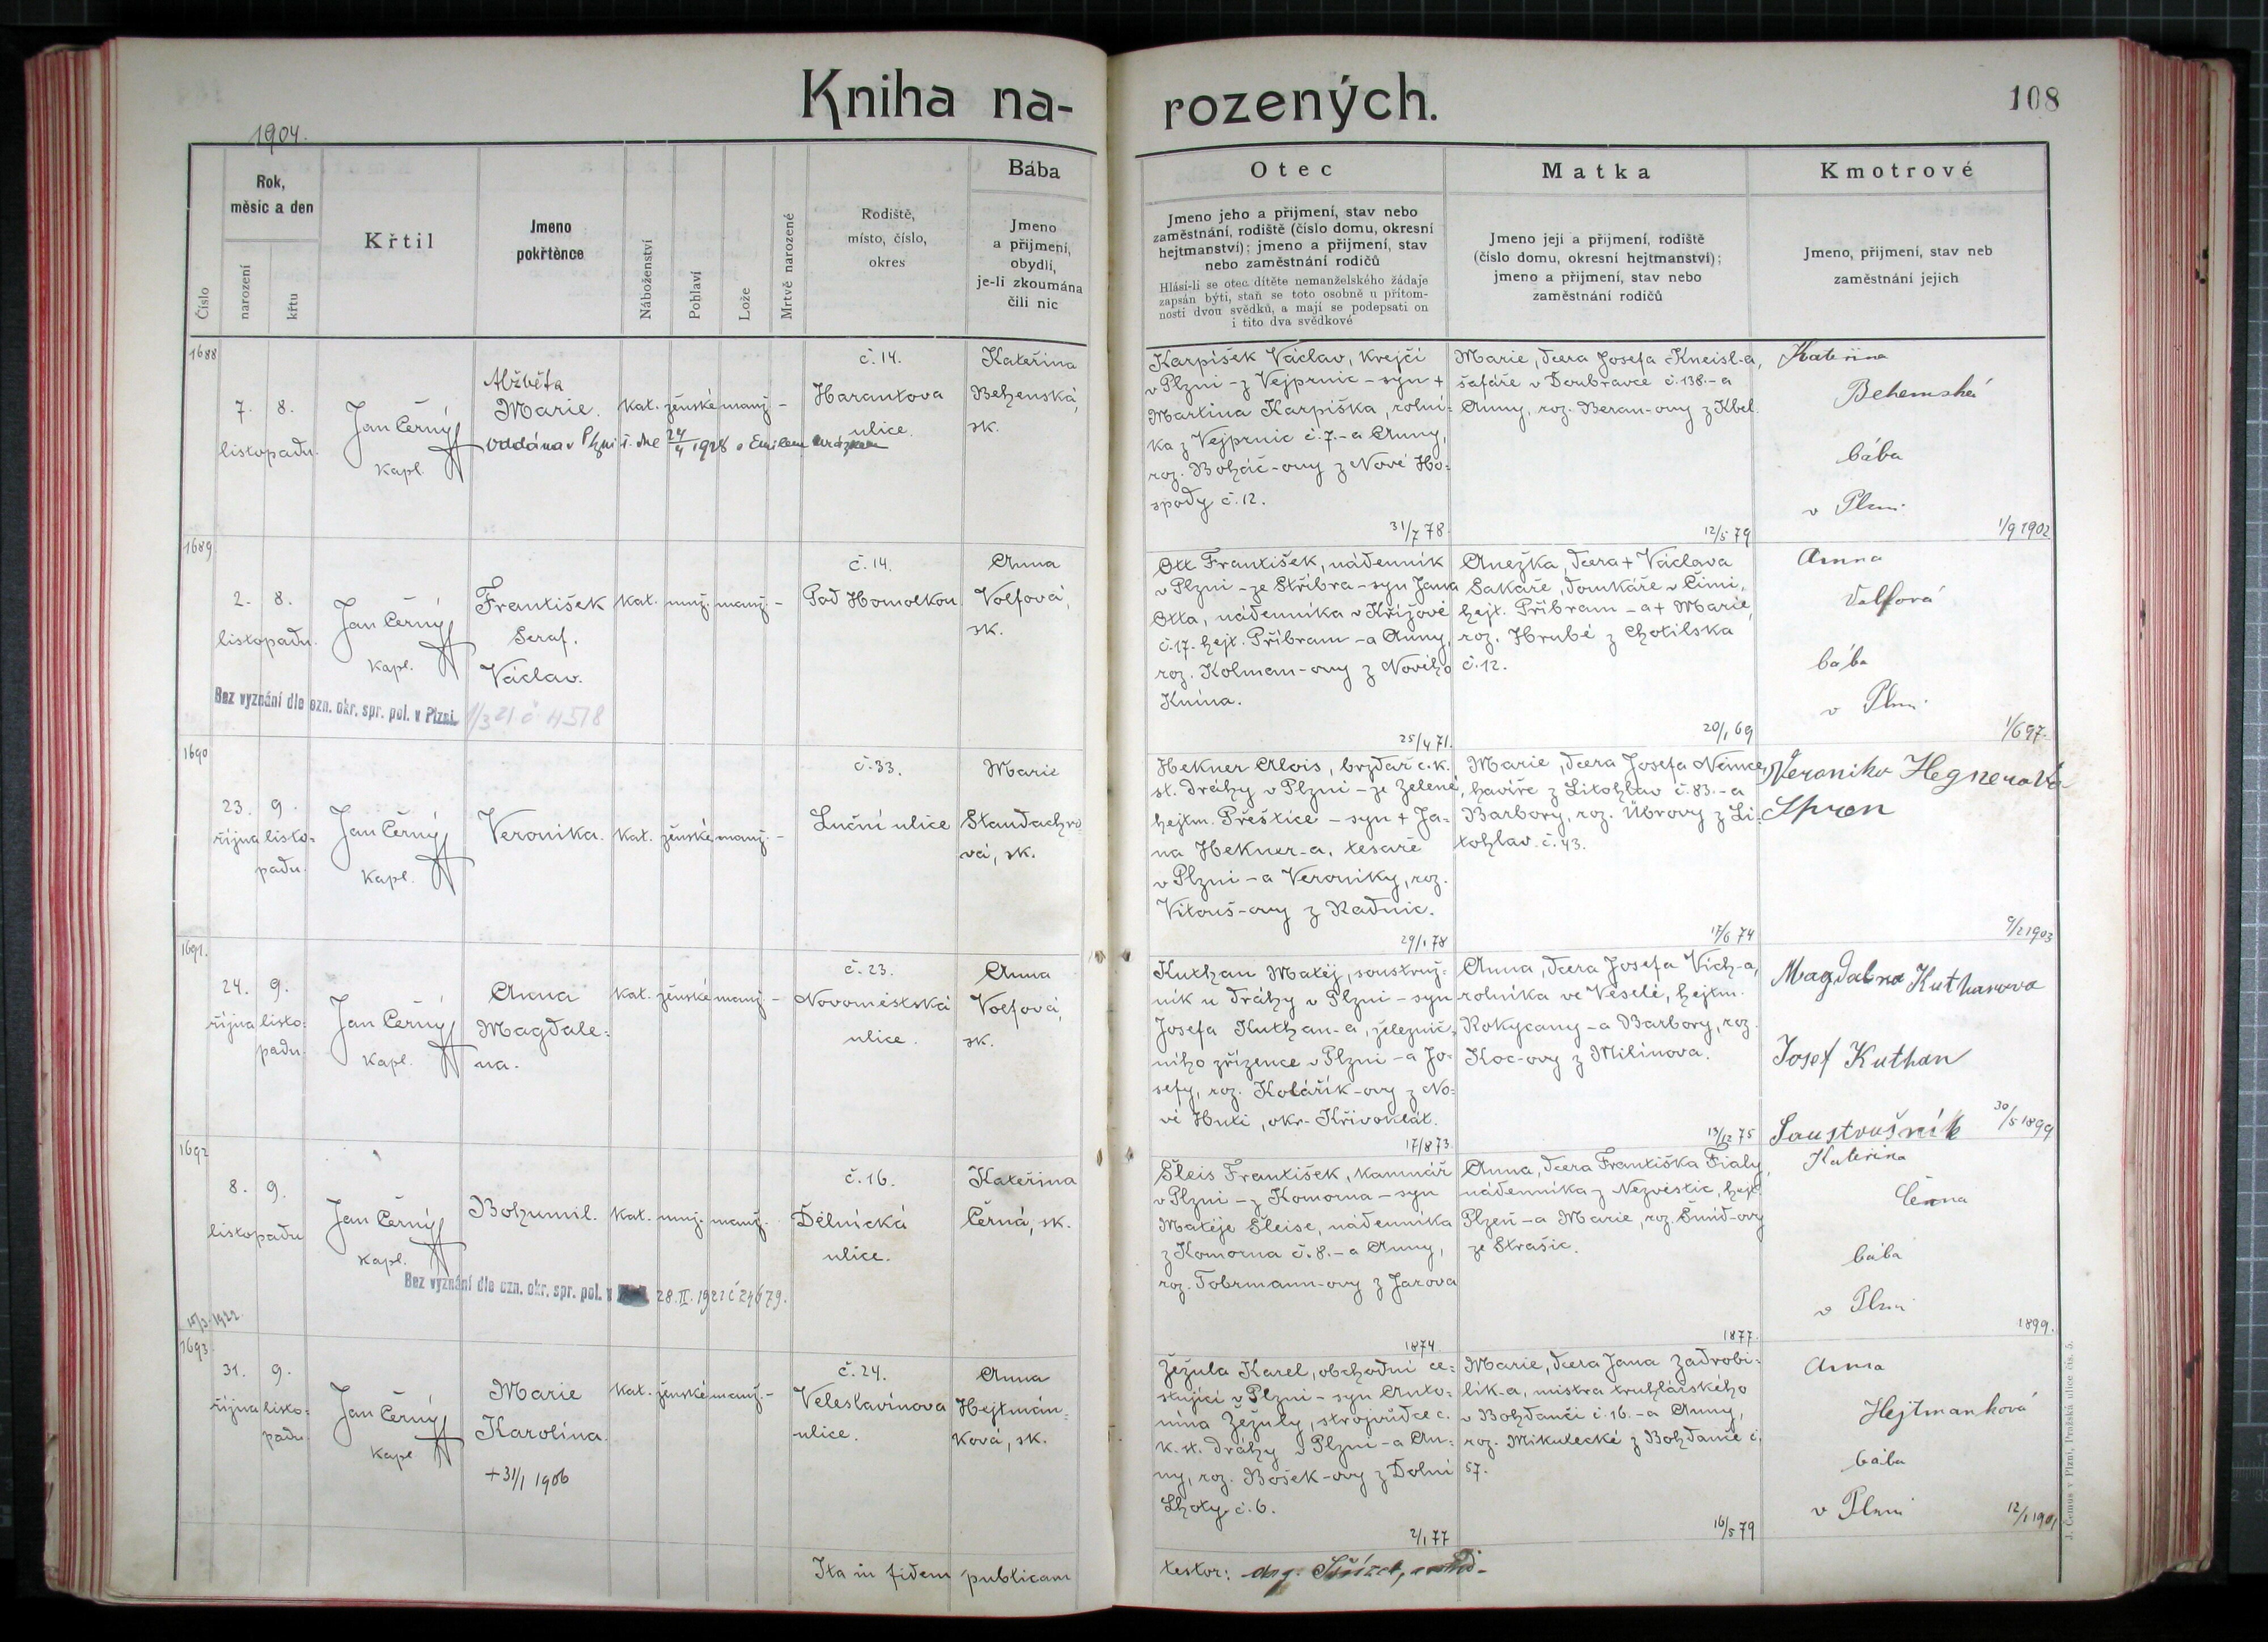 Kniha na-
rozených.
108
1904.
Číslo
Rok,
měsíc a den
narození
křtu
Křtil
Jmeno
pokřtěnce
Náboženství
Pohlaví
Lože
Mrtvě narozené
Rodiště,
místo, číslo,
okres
Bába
Jmeno
a přijmení,
obydlí,
je-li zkoumána
čili nic
Otec
Jmeno jeho a přijmení, stav nebo
zaměstnání, rodiště (číslo domu, okresní
hejtmanství); jmeno a přijmení, stav
nebo zaměstnání rodičů
Hlásí-li se otec dítěte nemanželského žádaje
zapsán býti, staň se toto osobně u přítom-
nosti dvou svědků, a mají se podepsati on
i tito dva svědkové
Matka
Jmeno její a přijmení, rodiště
(číslo domu, okresní hejtmanství);
jmeno a přijmení, stav nebo
zaměstnání rodičů
Kmotrové
Jmeno, přijmení, stav neb
zaměstnání jejich
1688
7. 8.
listopadu.
Jan Černý
Kapl.
Alžběta
Marie.
kat. ženské manž. -
Oddána v Plzni i. dne 24/4 1928 s Emilem
č. 14.
Harantova
ulice.
Kateřina
Behenská,
sk.
Karpíšek Václav, krejčí
v Plzni - z Vejprnic - syn +
Martina Karpíška, rolní-
ka z Vejprnic č. 7. - a Anny,
roz. Boháč-ovy z Nové Ho-
spody č. 12.
31/7 78.
Marie, dcera Josefa Kneisl-a,
šafáře v Doubravce č. 138. - a
Anny, roz. Beran-ovy z Kbel.
12/5 79
Kateřina
Behenská
bába
v Plzni
1/9 1902
1689
2. 8.
listopadu.
Jan Černý
Kapl.
František
Seraf.
Václav.
kat. muž. manž. -
Bez vyznání dle ozn. okr. spr. pol. v Plzni. 1/3 21 č. 4518
č. 14.
Pod Homolkou
Anna
Volfová,
sk.
Ott František, nádenník
v Plzni - ze Stříbra - syn Jana
Otta, nádenníka v Křížově
č. 17. hejt. Příbram - a Anny,
roz. Kolman-ovy z Nového
Knína.
25/4 71.
Anežka, dcera + Václava
Sakaře, domkáře v Čimi,
hejt. Příbram - a + Marie,
roz. Hrubé z Chotilska
č. 12.
20/1 69
Anna
Volfová
bába
v Plzni
1/6 97.
1690
23. 9.
října listo-
padu.
Jan Černý
Kapl.
Veronika.
kat. ženské manž. -
č. 33.
Luční ulice
Marie
Staudachro
vá, sk.
Hekner Alois, brzdař c. k.
st. dráhy v Plzni - ze Zelené,
hejtm. Přeštice - syn + Ja-
na Hekner-a, tesaře
v Plzni - a Veroniky, roz.
Vitouš-ovy z Radnic.
29/1 78
Marie, dcera Josefa Němce,
havíře z Litohlav č. 83. - a
Barbory, roz. Übrovy z Li-
tohlav. č. 43.
17/6 74
Veronika Hegnerová
1691.
24. 9.
října listo-
padu.
Jan Černý
Kapl.
Anna
Magdale-
na.
kat. ženské manž. -
č. 23.
Novoměstská
ulice.
Anna
Volfová,
sk.
Kuthan Matěj, soustruž-
ník u dráhy v Plzni - syn
Josefa Kuthan-a, železnič-
ního zřízence v Plzni - a Jo-
sefy, roz. Kolářík-ovy z No-
vé Huti, okr. Křivoklát.
17/8 73.
Anna, dcera Josefa Vích-a,
rolníka ve Veselé, hejtm.
Rokycany - a Barbory, roz.
Koc-ovy z Milínova.
13/12 75
Magdalena Kuthanova
Josef Kuthan
Soustružník
30/5 1899
1692
8. 9.
listopadu
Jan Černý
Kapl.
Bohumil.
kat. muž. manž.
Bez vyznání dle ozn. okr. spr. pol. v 28. II. 1921 č 24679.
č. 16.
Dělnická
ulice.
Kateřina
Černá, sk.
Šleis František, kamnář
v Plzni - z Komorna - syn
Matěje Šleise, nádenníka
z Komorna č. 8. - a Anny,
roz. Tobrmann-ovy z Jarova
1874.
Anna, dcera Františka Fialy,
nádenníka z Nezvěstic, hejt.
Plzeň - a Marie, roz. Šmíd-ovy
ze Strašic.
1877.
Kateřina
Černa
bába
v Plzni
1899.
1693
31. 9.
října listo-
padu.
Jan Černý
Kapl
Marie
Karolina.
+ 31/1 1906
kat. ženské manž. -
č. 24.
Veleslavínova
ulice.
Anna
Hejtmán-
ková, sk.
Žežula Karel, obchodní ce-
stující v Plzni - syn Anto-
nína Žežuly, strojvůdce c.
k. st. dráhy v Plzni - a An-
ny, roz. Bošek-ovy z Dolní
Lhoty č. 6.
2/1 77
Marie, dcera Jana Zadrobí-
lik-a, mistra truhlářského
v Bohdanči č. 16. - a Anny,
roz. Mikulecké z Bohdanče č.
57.
16/5 79
Anna
Hejtmanková
bába
v Plzni
12/1 1901
Ita in fidem publicam
testor:
J. Čermus v Plzni, Pražská ulice čís. 5.